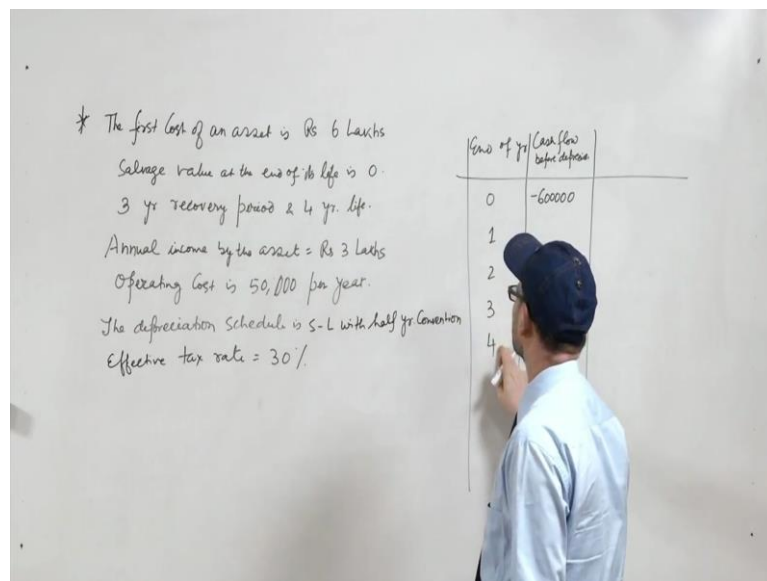 * The first Cost of an asset is Rs 6 Lakhs
Salvage value at the end of its life is 0.
3 yr recovery period & 4 yr. life.
Annual income by the asset = Rs 3 Lakhs
Operating Cost is 50,000 per year.
The depreciation schedule is S-L with half yr. Convention
Effective tax rate = 30%.
End of yr Cash flow
before
0 -600000
1
2
3
4